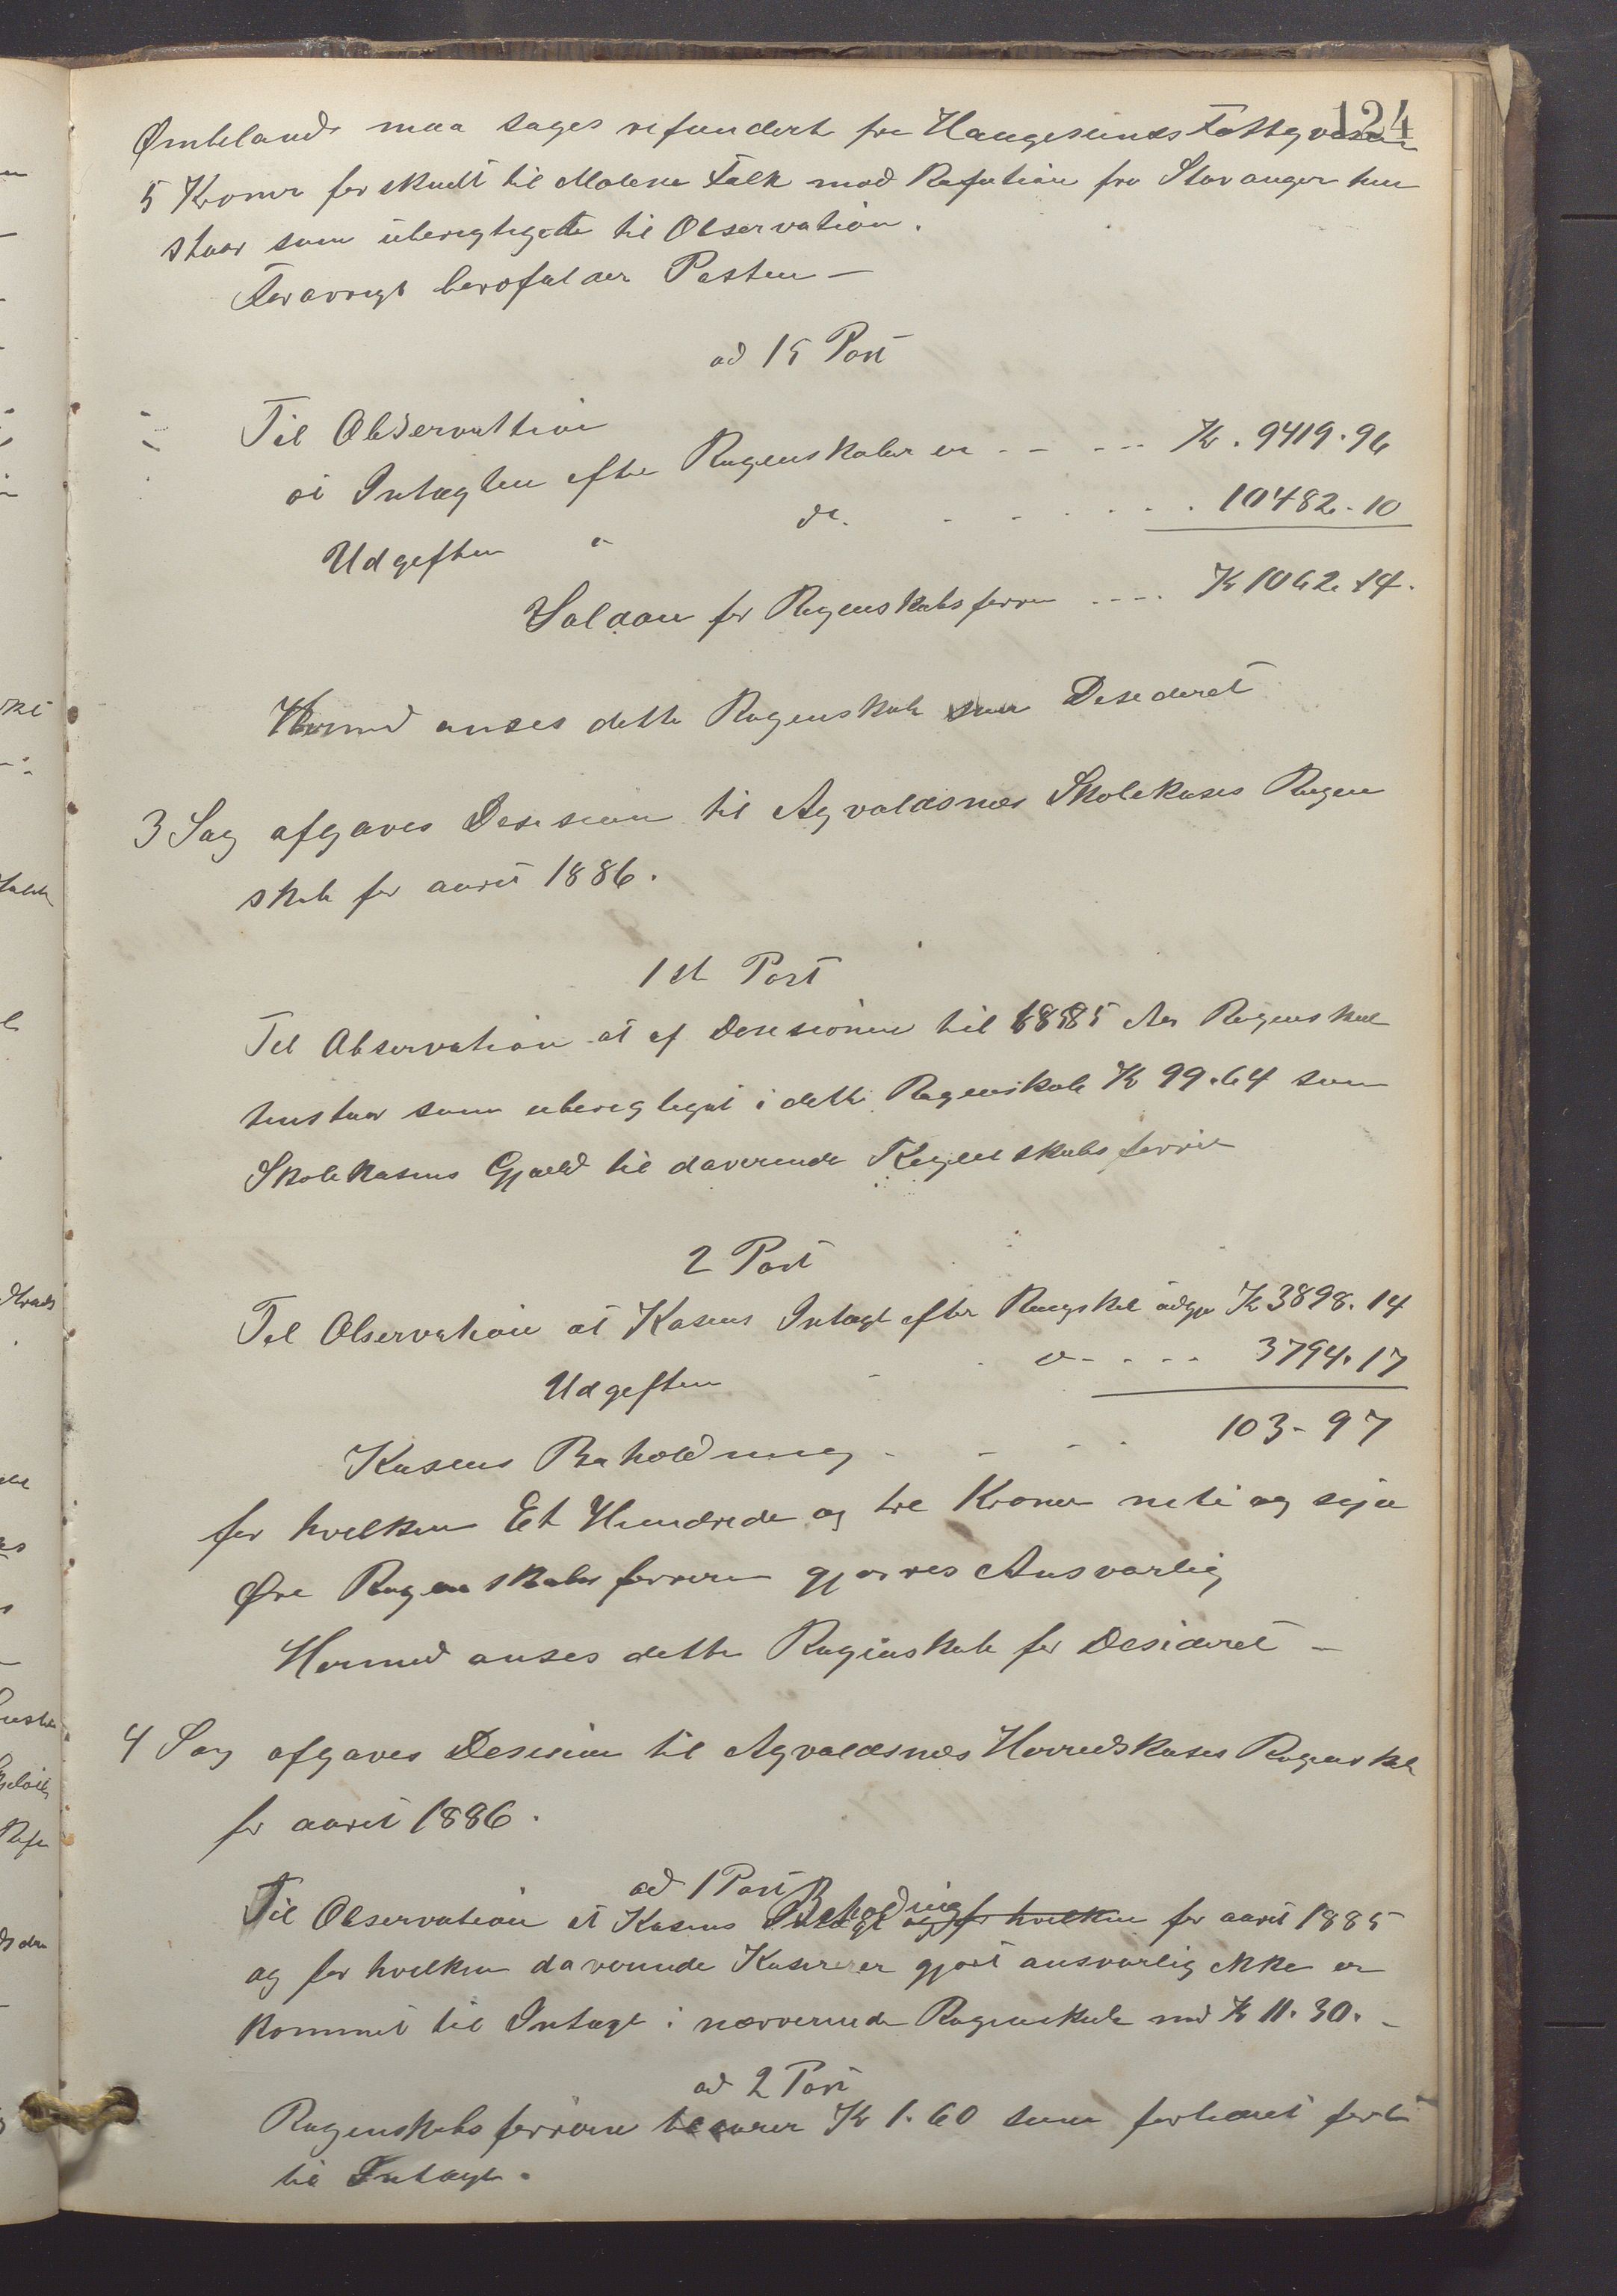 124
Ømbelands maa søges refundert fra Haugesunds Fattigvesen
5 Kroner forskudt til Malene Falk mod Refution fra Stavanger hen
staar som uberegtigede til Observation.
Forøvrigt berofalder Posten —
ad 15 Post
Til Observattion
at Intægten efter Regenskabet er . . . . . Kr. 9419.96
Udgeften " do. . . . . . . 10482.10
Saldon for Regenskabsføren .... Kr 1062.14.
Hermed anses dette Regenskab som Desederet
3 Sag afgaves Desision til Agvaldsnes Skolekases Regen
skab for aaret 1886.
1st Post
Til Observation at af Desisionen til 1885 Aars Regenskab
henstaar som uberegtiget i dette Regenskab Kr 99.64 som
Skolekasens Gjæld til daverende Regenskabsfører
2 Post
Til Observation at Kasens Intægt efter Regnskab udgjør Kr 3898.14
Udgeften - - do - - - 3794.17
Kasens Beholdning - - - . 103-97
for hvelken Et Hundrede og tre Kroner neti og syv
Øre Regenskabsføreren gjøres Ansvarlig
Hermed anses dette Regenskab for Desideret —
4 Sag afgaves Desision til Agvaldsnes Herredskases Regenskab
for aaret 1886.
ad 1 Post
Til Observation at Kasens Beholdning for hvelken for aaret 1885
og for hvelken daverende Kaserer er gjort ansvarlig ikke er
kommet til Intægt i nærverende Regenskab med Kr 11.30. -
ad 2 Post
Regenskabsføreren Kr 1.60 som forlaret ført
til Intægt.